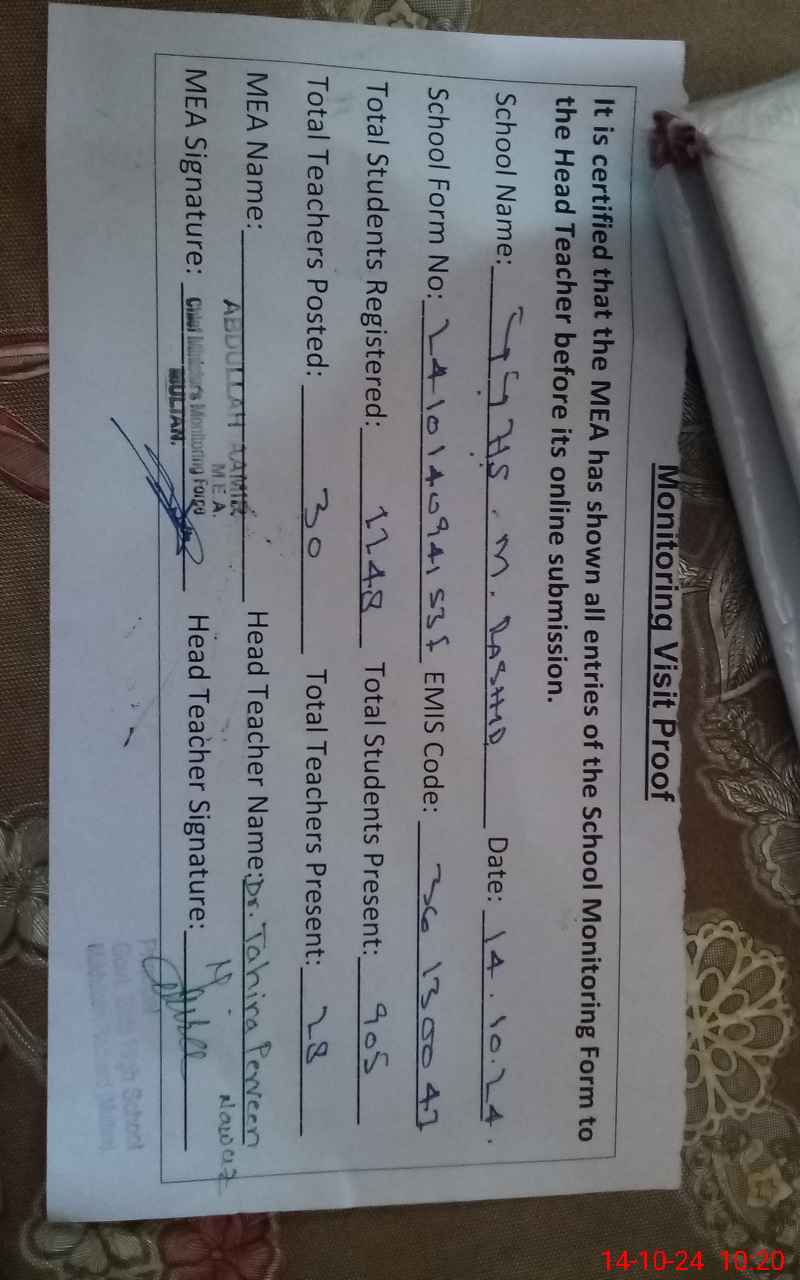 Monitoring Visit Proof
It is certified that the MEA has shown all entries of the School Monitoring Form to
the Head Teacher before its online submission.
School Name: GGHS. M. RASHID Date: 14.10.24.
School Form No: EMIS Code: 36130047
Total Students Registered: 1148 Total Students Present: 905
Total Teachers Posted: 30 Total Teachers Present: 28
MEA Name: ABDULLAH AAMIR Head Teacher Name: Dr. Tahira Perveen
M E A. Nawaz
MEA Signature: Chief Minister's Monitoring Force Head Teacher Signature:
MULTAN.
Govt. Girls High School
14-10-24 10:20